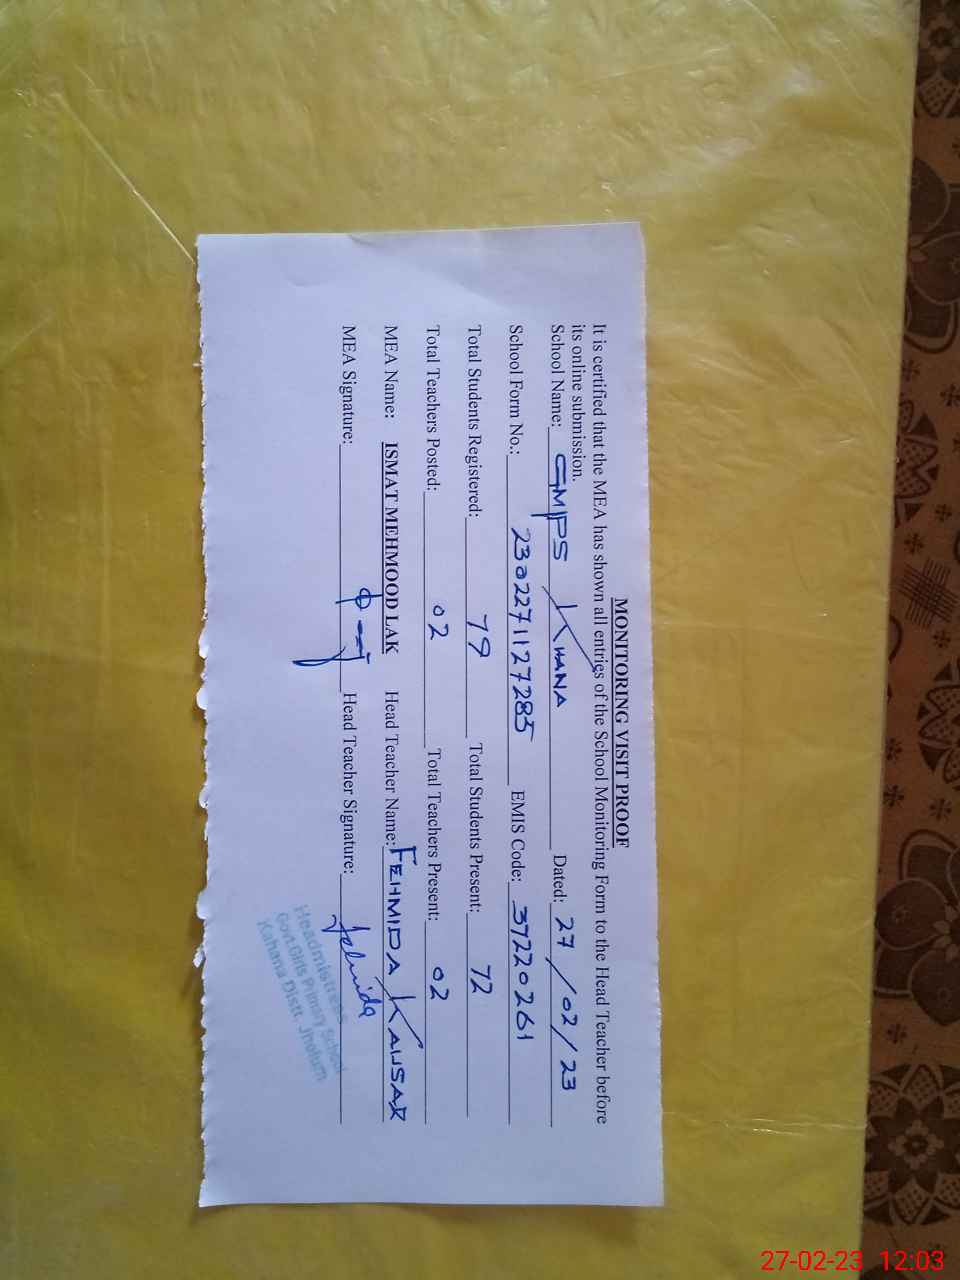 MONITORING VISIT PROOF
It is certified that the MEA has shown all entries of the School Monitoring Form to the Head Teacher before
its online submission.
School Name: GMPS KHANA Dated: 27/02/23
School Form No.: 2302271127285 EMIS Code: 37220261
Total Students Registered: 79 Total Students Present: 72
Total Teachers Posted: 02 Total Teachers Present: 02
MEA Name: ISMAT MEHMOOD LAK Head Teacher Name: FEHMIDA KAUSAR
MEA Signature: Head Teacher Signature: Fehmida
Headmistress
Govt.Girls Primary School
Kahana Distt. Jhelum
27-02-23 12:03